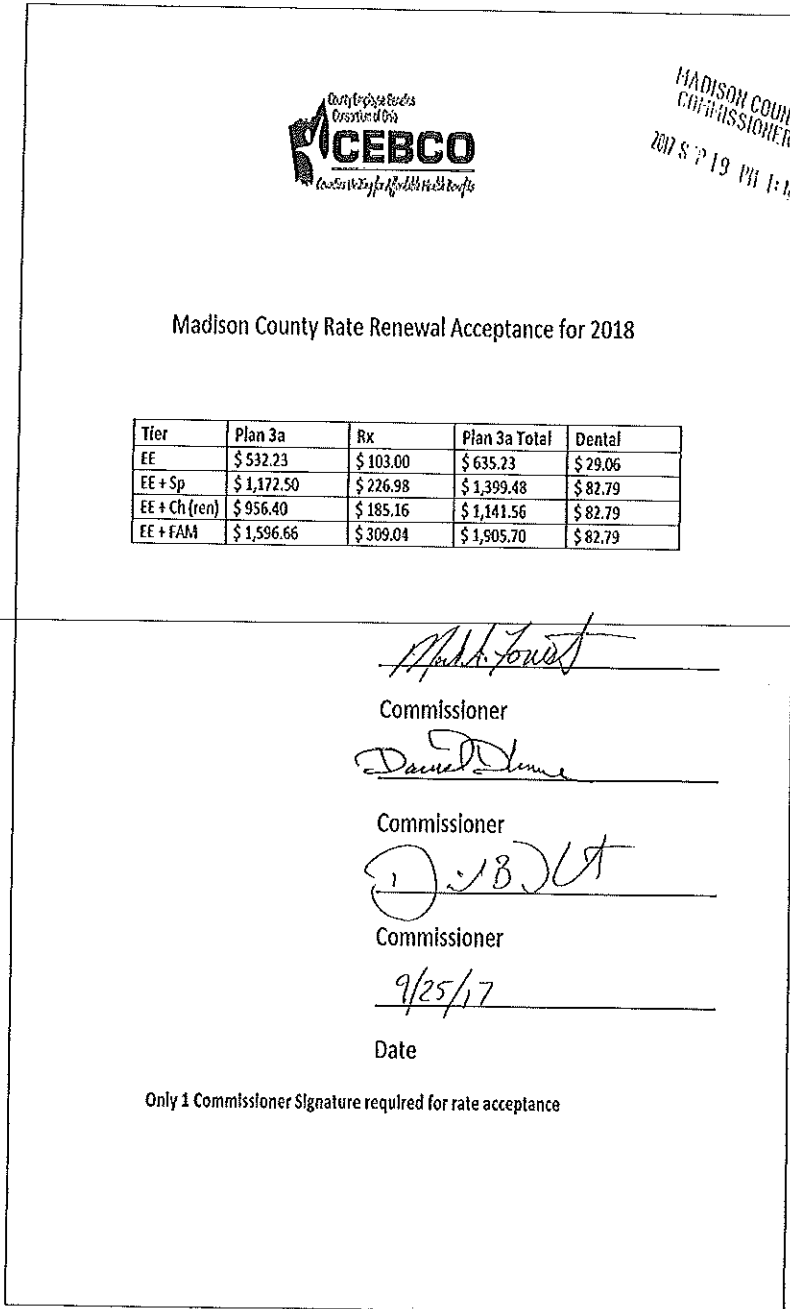 County Employee Benefits
Consortium of Ohio
CEBCO
MADISON COUN
COMMISSIONER
2017 S P 19 PM 1:1
Madison County Rate Renewal Acceptance for 2018
Tier Plan 3a Rx Plan 3a Total Dental
EE $ 532.23 $ 103.00 $ 635.23 $ 29.06
EE + Sp $ 1,172.50 $ 226.98 $ 1,399.48 $ 82.79
EE + Ch (ren) $ 956.40 $ 185.16 $ 1,141.56 $ 82.79
EE + FAM $ 1,596.66 $ 309.04 $ 1,905.70 $ 82.79
Commissioner
Commissioner
Commissioner
9/25/17
Date
Only 1 Commissioner Signature required for rate acceptance